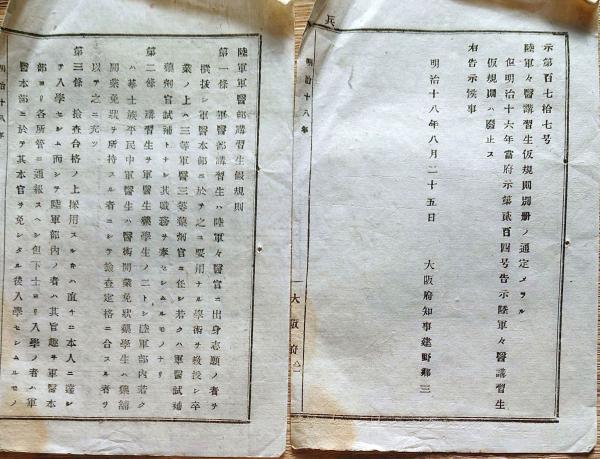 兵
示第百七拾七号
陸軍々医講習生仮規則別冊ノ通定メラル
但明治十六年当府示第貳百四号告示陸軍々医講習生
仮規則ハ廃止ス
右告示候事
明治十八年八月二十五日
大阪府知事建野郷三
大阪府
明治十八年
陸軍軍醫部講習生假規則
第一條 軍醫部講習生ハ陸軍々醫官ニ出身志願ノ者ヲ
撰拔シ軍醫本部ニ於テ之ニ要用ナル學術ヲ敎授シ卒
業ノ上ハ三等軍醫三等藥劑官ニ任シ若クハ軍醫試補
藥劑官試補トナシ其職務ヲ奉セシムルモノナリ
第二條 講習生ヲ軍醫生藥學生ノ二トシ陸軍部內若ク
ハ華士族平民中軍醫生ハ醫術開業免狀藥學生ハ藥舖
開業免狀ヲ所持スル者ニシテ撿査定格ニ合スル者ヲ
以テ之ニ充ツ
第三條 撿査合格ノ上採用スルトキハ直チニ本人ニ達シ
テ入學セシム而シテ陸軍部內ノ者ハ其旨趣ヲ軍醫本
部ヨリ各所管ニ通報スヘシ但下士ヨリ入學ノ者ハ軍
醫本部ニ於テ其本官ヲ免シタル後入學セシムルモノ
明治十八年